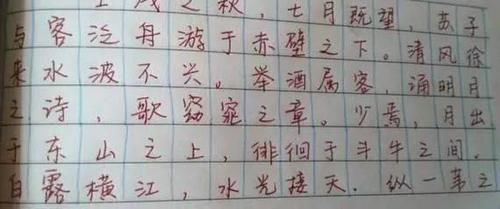 戌之秋，七月既望，苏子
与客泛舟游于赤壁之下。清风徐
来水波不兴。举酒属客，诵明月
之诗，歌窈窕之章。少焉，月出
于东山之上，徘徊于斗牛之间．
白露横江，水光接天．纵一苇之